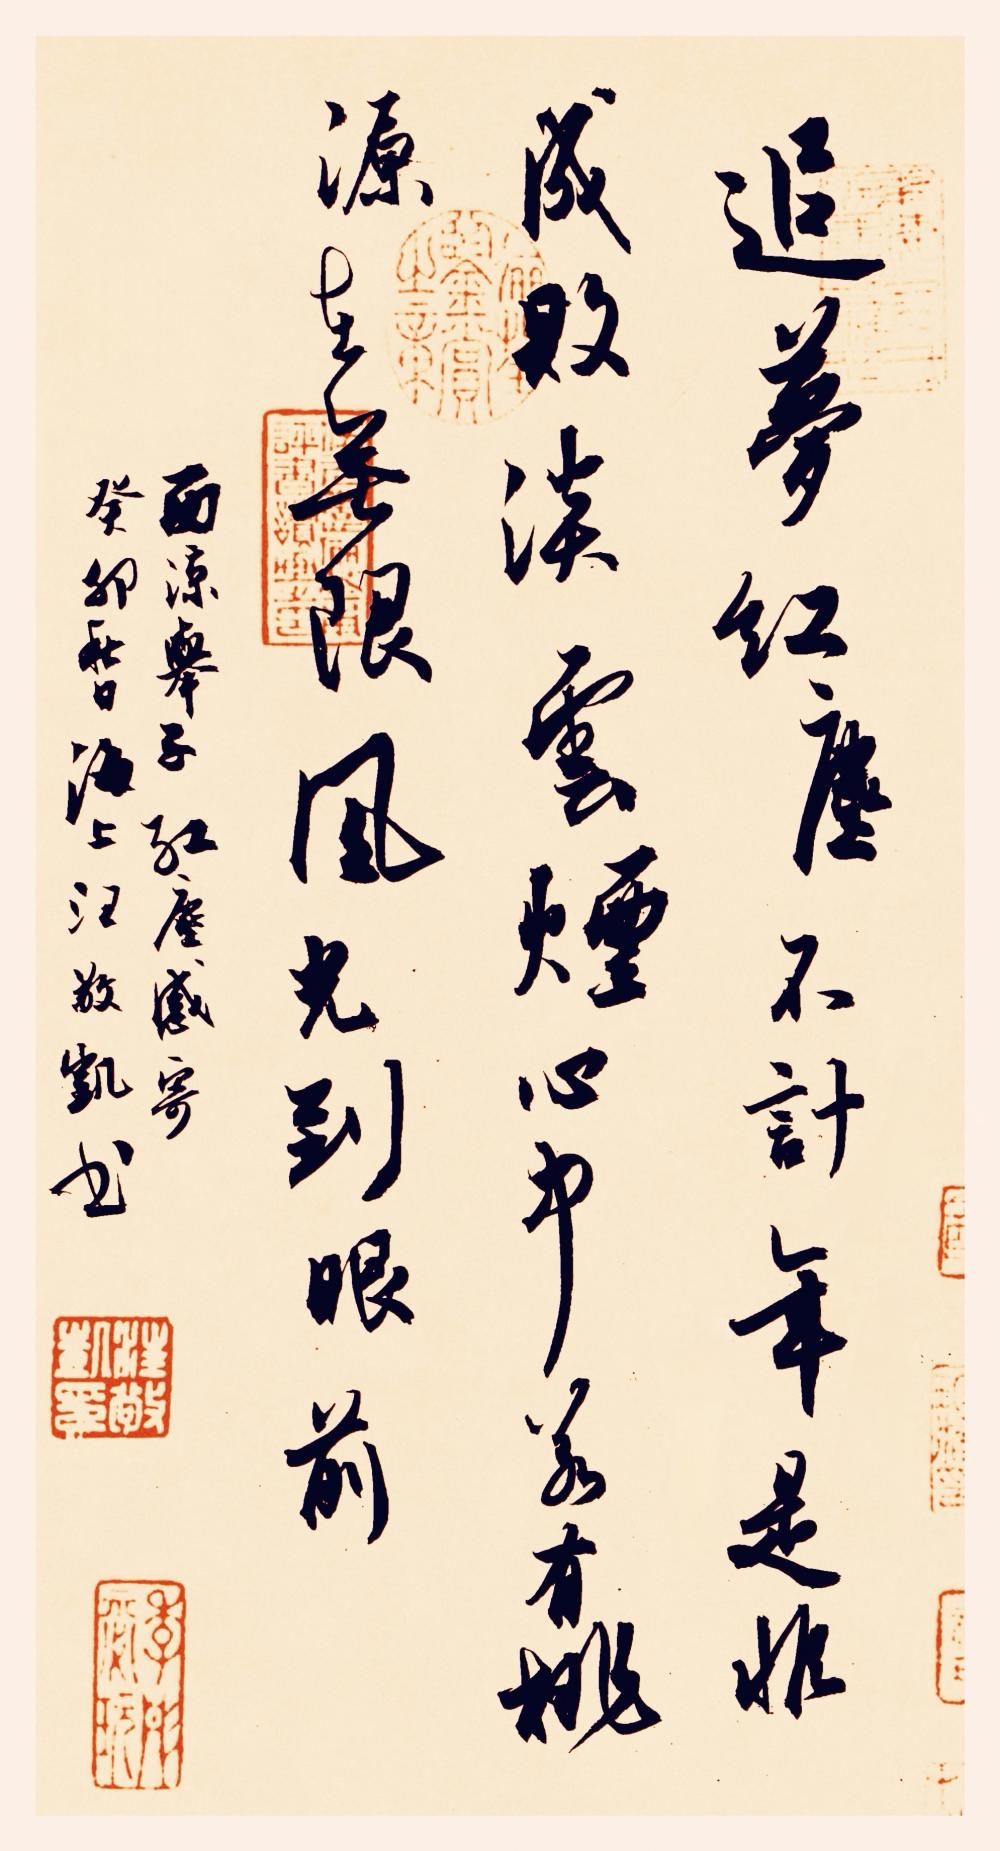 追夢紅塵不計年是非
成敗淡雲煙心中若有桃
源在無限風光到眼前
西涼舉子紅塵感寄
癸卯春日海上汪敬凱书
汪敬凱印